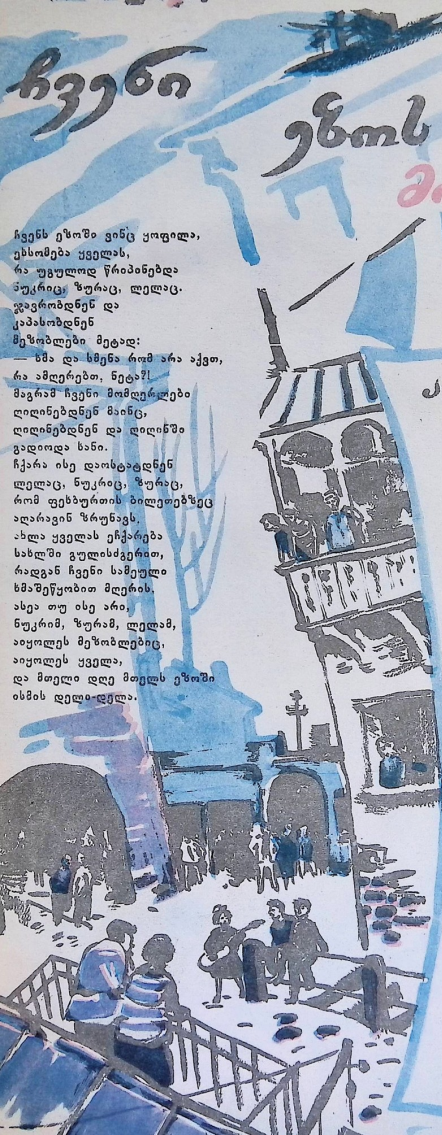 ჩვენი
ეზოს
ჩვენს ეზოში ვინც ყოფილა,
ეხსომება ყველას,
რა უგულოდ წრიპინებდა
ნუკრიც, ზურაც, ლელაც.
ჯავრობდნენ და
კაპასობდნენ
მეზობლები მეტად:
— ხმა და სმენა რომ არა აქვთ,
რა ამღერებთ, ნეტა?!
მაგრამ ჩვენი მომღერლები
ღიღინებდნენ მაინც,
ღიღინებდნენ და ღიღინში
გადიოდა ხანი.
ჩქარა ისე დაოსტატდნენ
ლელაც, ნუკრიც, ზურაც,
რომ ფეხბურთის ბილეთებზეც
აღარავინ ზრუნავს,
ახლა ყველას ეჩქარება
სახლში გულისძგერით,
რადგან ჩვენი სამეული
ხმაშეწყობით მღერის,
ასეა თუ ისე არი,
ნუკრიმ, ზურამ, ლელამ,
აიყოლეს მეზობლებიც,
აიყოლეს ყველა,
და მთელი დღე მთელს ეზოში
ისმის დელი-დელა.